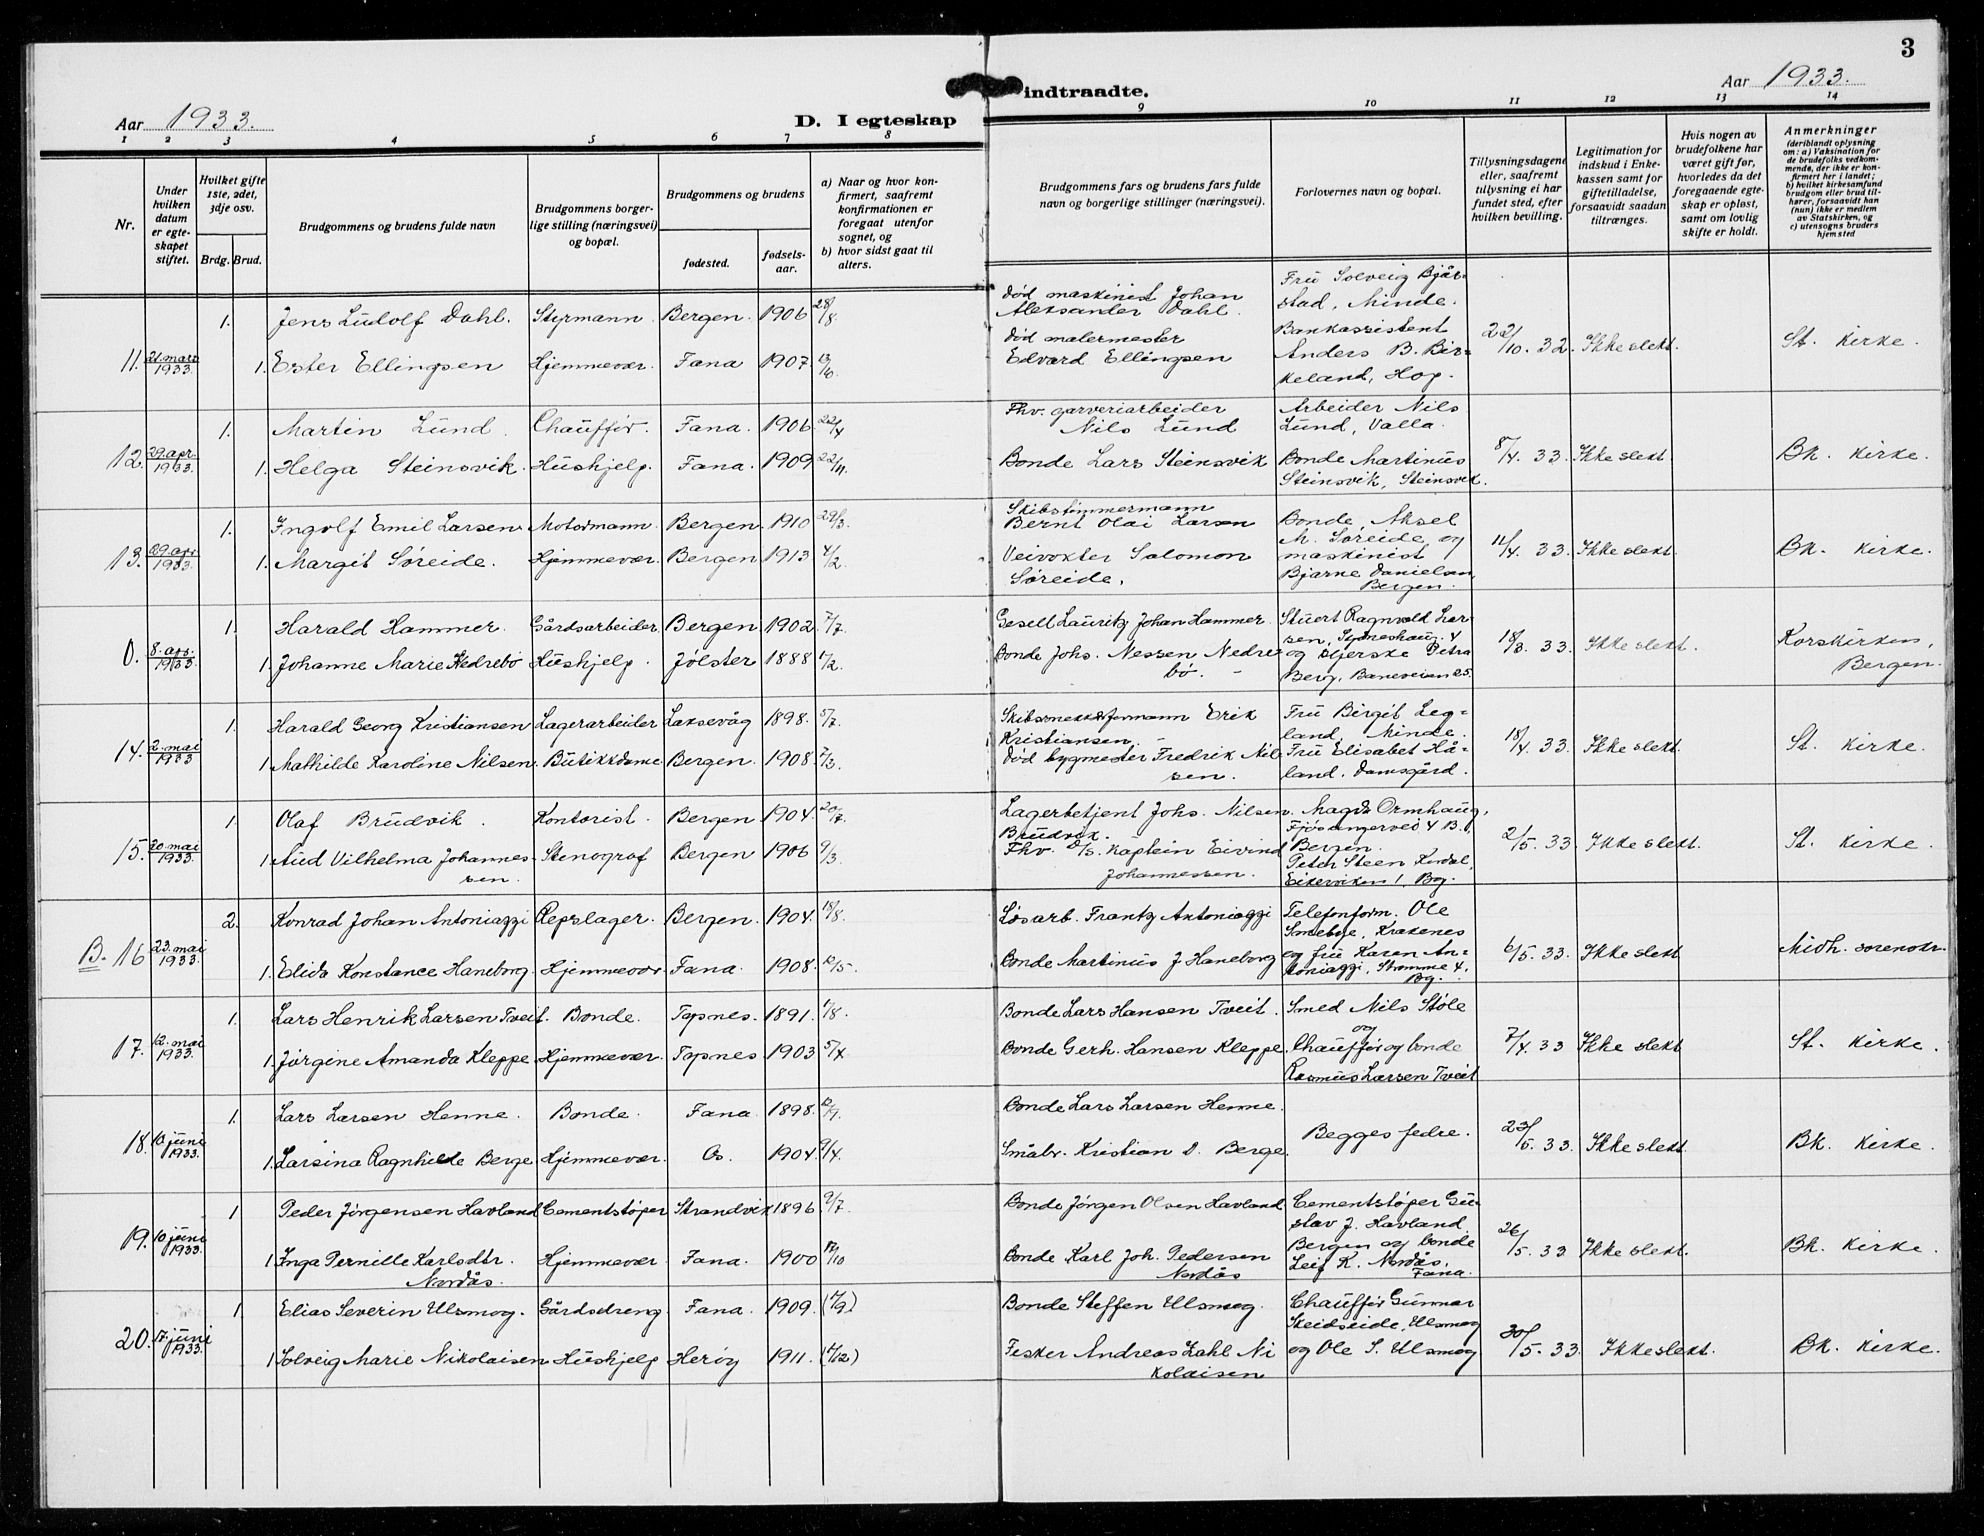 3
Aar 1933.
D. I egteskap indtraadte.
Aar 1933.
1 2 3 4 5 6 7 8 9 10 11 12 13 14
Nr.
Under hvilken datum er egteskapet stiftet.
Hvilket gifte 1ste, 2det, 3dje osv.
Brdg. Brud.
Brudgommens og brudens fulde navn
Brudgommens borgerlige stilling (næringsvei) og bopæl.
Brudgommens og brudens
fødested. fødselsaar.
a) Naar og hvor konfirmert, saafremt konfirmationen er foregaat utenfor sognet, og
b) hvor sidst gaat til alters.
Brudgommens fars og brudens fars fulde navn og borgerlige stillinger (næringsvei).
Forlovernes navn og bopæl.
Tillysningsdagene eller, saafremt tillysning ei har fundet sted, efter hvilken bevilling.
Legitimation for indskud i Enkekassen samt for giftetilladelse, forsaavidt saadan tiltrænges.
Hvis nogen av brudefolkene har været gift før, hvorledes da det foregaaende egteskap er opløst, samt om lovlig skifte er holdt.
Anmerkninger
(deriblandt oplysning om: a) Vaksination for de brudefolks vedkommende, der ikke er konfirmert her i landet;
b) hvilket kirkesamfund brudgom eller brud tilhører, forsaavidt han (hun) ikke er medlem av Statskirken, og
c) utensogns bruders hjemsted
11. 21. mars 1933.
1. Jens Ludolf Dahl. Styrmann. Bergen. 1906 28/8.
1. Ester Ellingsen Hjemmevær. Fana 1907 13/6.
død maskinist Johan
Aleksander Dahl.
død malermester
Edvard Ellingsen
Fru Solveig Bjår-
stad, Minde.
Bankassistent
Anders B. Bir-
keland, Hop.
22/10. 32. Ikke slekt. St. Kirke.
12. 29. apr. 1933.
1. Martin Lund. Chauffør. Fana. 1906 22/4
1. Helga Steinsvik. Hushjelp. Fana. 1909 22/11.
Fhv. garveriarbeider
Nils Lund
Bonde Lars Steinsvik
Arbeider Nils
Lund, Valla.
Bonde Martinus
Steinsvik, Steinsvik.
8/4. 33. Ikke slekt Bk. Kirke.
13. 29. apr. 1933.
1. Ingolf Emil Larsen Motormann. Bergen. 1910 29/3.
1. Margit Søreide. Hjemmevær. Bergen 1913 4/2
Skibstimmermann
Bernt Olai Larsen
Veivokter Salomon
Søreide.
Bonde, Aksel
M. Søreide, og
maskinist
Bjarne Danielsen,
Bergen.
11/4. 33. Ikke slekt. Bk. Kirke.
0. 8. apr. 1933.
1. Harald Hammer. Gårdsarbeider. Bergen 1902 7/7.
1. Johanne Marie Nedrebø Hushjelp. Jølster 1888 1/2.
Gesell Lauritz Johan Hammer
Bonde Johs. Nessen Nedre-
bø.
Stuert Ragnvald Lar-
sen, Sydneshaug. 4
og syerske Petra
Berg, Baneveien 25.
18/3. 33. Ikke slekt. Korskirken,
Bergen.
14. 2. mai 1933
1. Harald Georg Kristiansen Lagerarbeider Laksevåg 1898. 5/7.
1. Mathilde Karoline Nilsen. Butikkdame Bergen. 1908. 7/3.
Erik
Kristiansen
død bygmester Fredrik Nil-
sen.
Fru Birgit Leg-
land, Minde.
Fru Elisabet Hå-
land, Damsgård.
18/4. 33. Ikke slekt. St. Kirke.
15. 20. mai 1933.
1. Olaf Brudvik. Kontorist. Bergen 1904. 20/7.
1. Aud Vilhelma Johannes-
sen. Stenograf Bergen 1906 9/3.
Lagerbetjent Johs. Nilsen
Brudvik.
Fhv. D/S. kaptein Eivind
Johannessen.
Magda Ormhaug,
Fjøsangervei 4 B.,
Bergen.
Peter Steen
Eikeviken 1, Bg.
2/5. 33. Ikke slekt. St. Kirke.
B. 16 23. mai 1933.
2. Konrad Johan Antoniazzi Repslager. Bergen. 1904. 18/8.
1. Elida Konstance Haneborg. Hjemmevær Fana. 1908. 12/5.
Løsarb. Frantz Antoniazzi
Bonde Martinus J Haneborg
Telefonform. Ole
Smebye, Kråkenes
og fru Karen An-
toniazzi, Strømme 4,
Bg.
6/5. 33. Ikke slekt Midh. sorenskr.
17. 12. mai 1933.
1. Lars Henrik Larsen Tveit. Bonde. Topnes. 1891. 1/8.
1. Jørgine Amanda Kleppe Hjemmevær. Topnes 1903 5/4
Bonde Lars Hansen Tveit.
Bonde Gerh. Hansen Kleppe.
Smed Nils Støle
og
Chauffør og bonde
Rasmus Larsen Tveit
7/4. 33 Ikke slekt St. Kirke.
18. 10 juni 1933.
1. Lars Larsen Henne. Bonde. Fana 1898. 12/9.
1. Larsina Ragnhilde Berge Hjemmevær. Os. 1904. 9/4.
Bonde Lars Larsen Henne.
Småbr. Kristian D. Berge.
Begges fedre.
23/5. 33. Ikke slekt. Bk. Kirke.
19. 10 juni 1933.
1. Peder Jørgensen Havland Cementstøper Strandvik 1896 9/7.
1. Inga Pernille Karlsdtr.
Nordås. Hjemmevær Fana. 1900 17/10
Bonde Jørgen Olsen Havland
Bonde Karl Joh. Pedersen
Nordås
Cementstøper Gu-
stav J. Havland
Bergen og bonde
Leif K. Nordås,
Fana.
26/5. 33 Ikke slekt. Bk. Kirke.
20. 17. juni 1933.
1. Elias Severin Ulsmog. Gårdsdreng. Fana. 1909. (4/9.)
1 Solveig Marie Nikolaisen Hushjelp Herøy 1911. (4/12)
Bonde Steffen Ulsmog.
Fisker Andreas Zahl Ni
kolaisen
Chauffør Gunnar
Skeidseide, Ulsmog
og Ole S. Ulsmog
30/5. 33. Ikke slekt. Bk. Kirke.